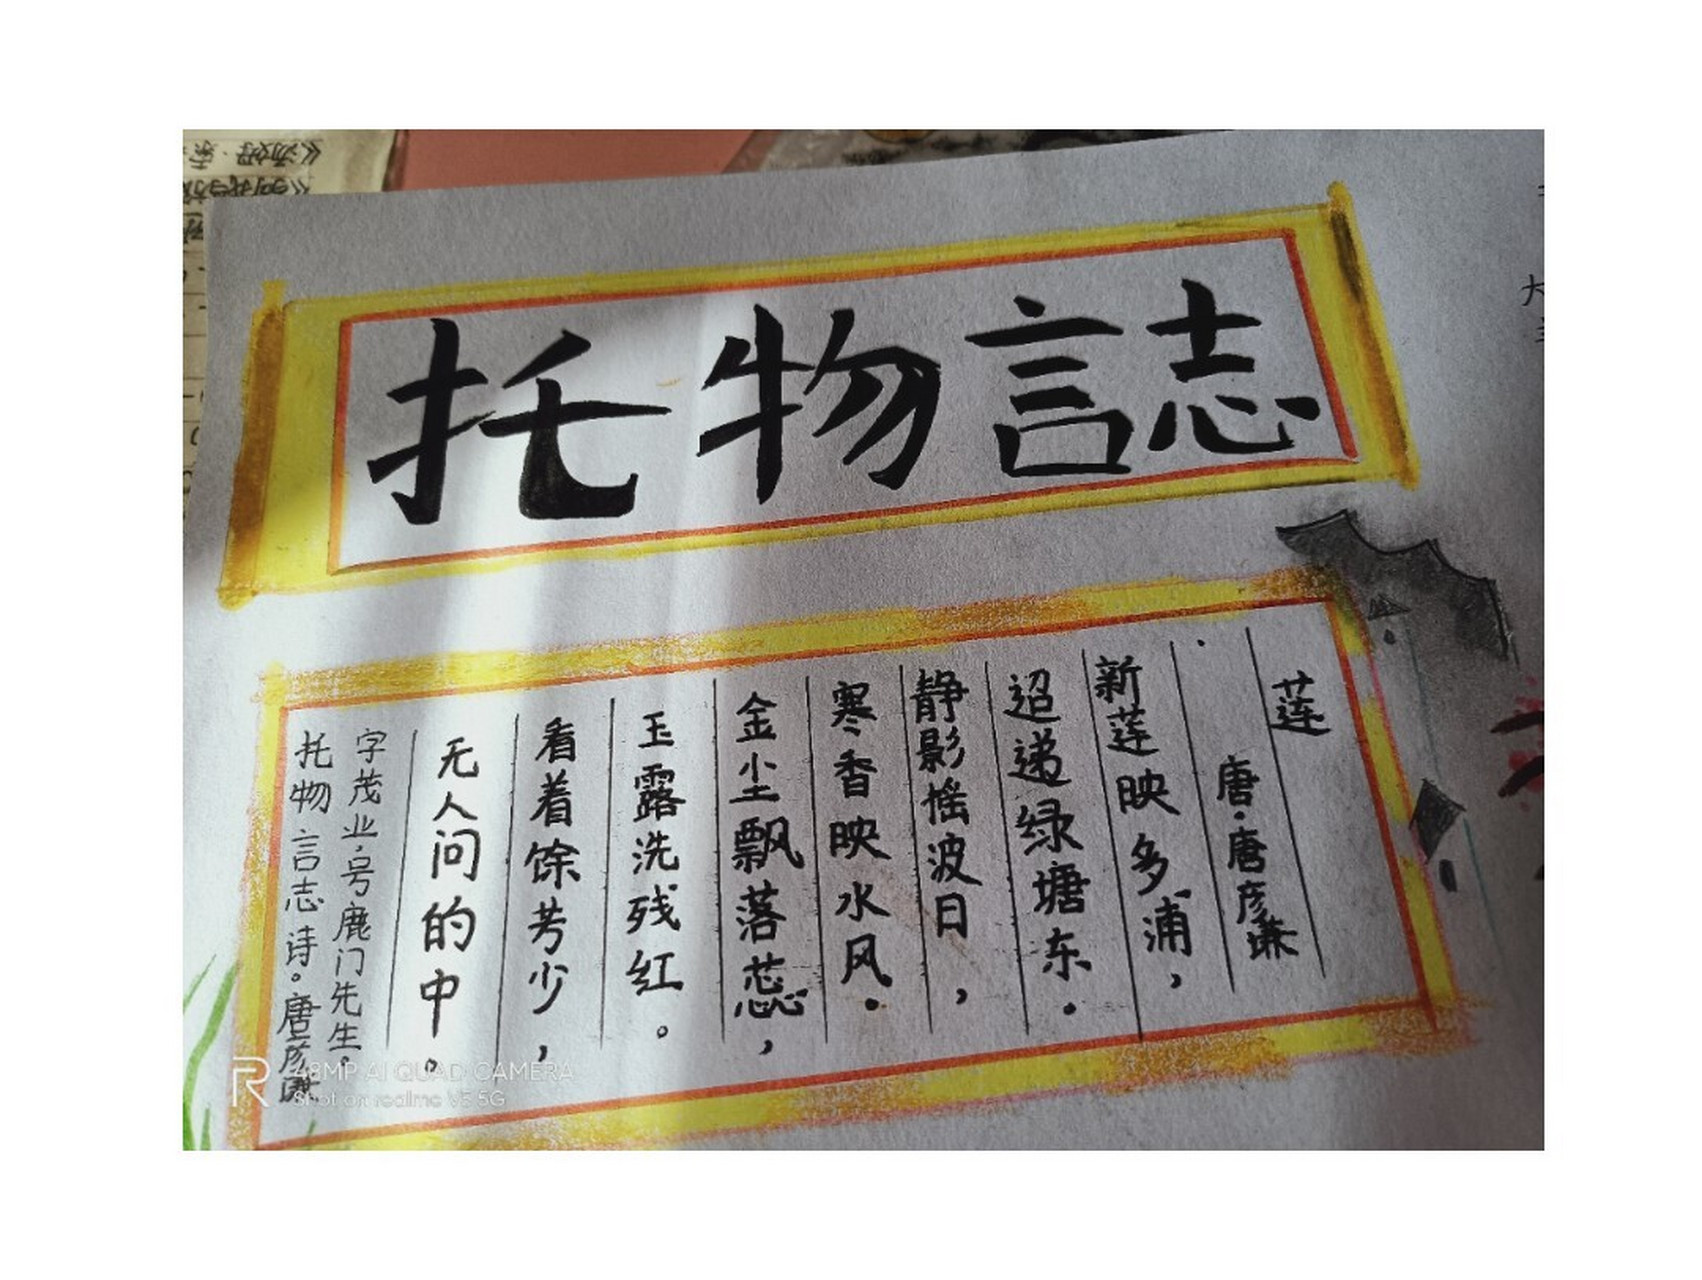 托物言志
莲
唐·唐彦谦
新莲映多浦，
迢递绿塘东。
静影摇波日，
寒香映水风。
金尘飘落蕊，
玉露洗残红。
看着馀芳少，
无人问的中。
字茂业·号鹿门先生。
托物言志诗。唐彦谦
48MP AI QUAD CAMERA
Shot on realme V5 5G